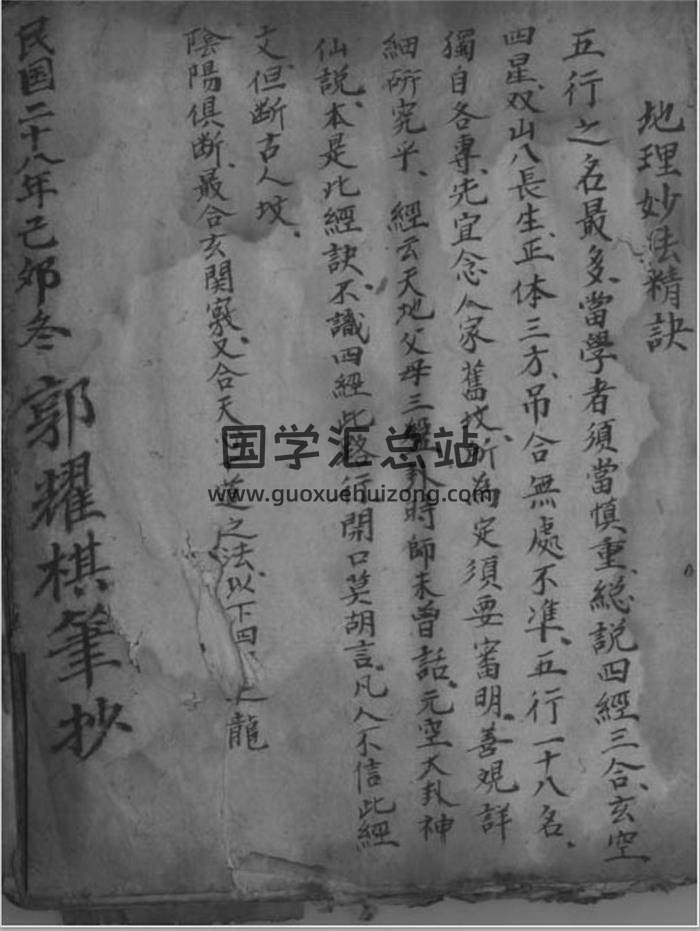 地理妙法精訣
五行之名最多、當學者須當慎重、総説四經三合、玄空、
四星、双山八長生、正体三方、吊合無處不準、五行一十八名、
獨自各專、先宜念人家舊坟、所為定須要審明、善覌詳
細硏究乎、經云天地父母三卦時師未曾話、元空大卦神
仙説、本是此經訣、不識四經此路行、開口莫胡言、凡人不信此經
文、但断古人坟、
陰陽俱断、最合玄関竅、又合天道之法、以下四龍
民国二十八年己夘冬 郭耀棋筆抄
国学汇总站
www.guoxuehuizong.com